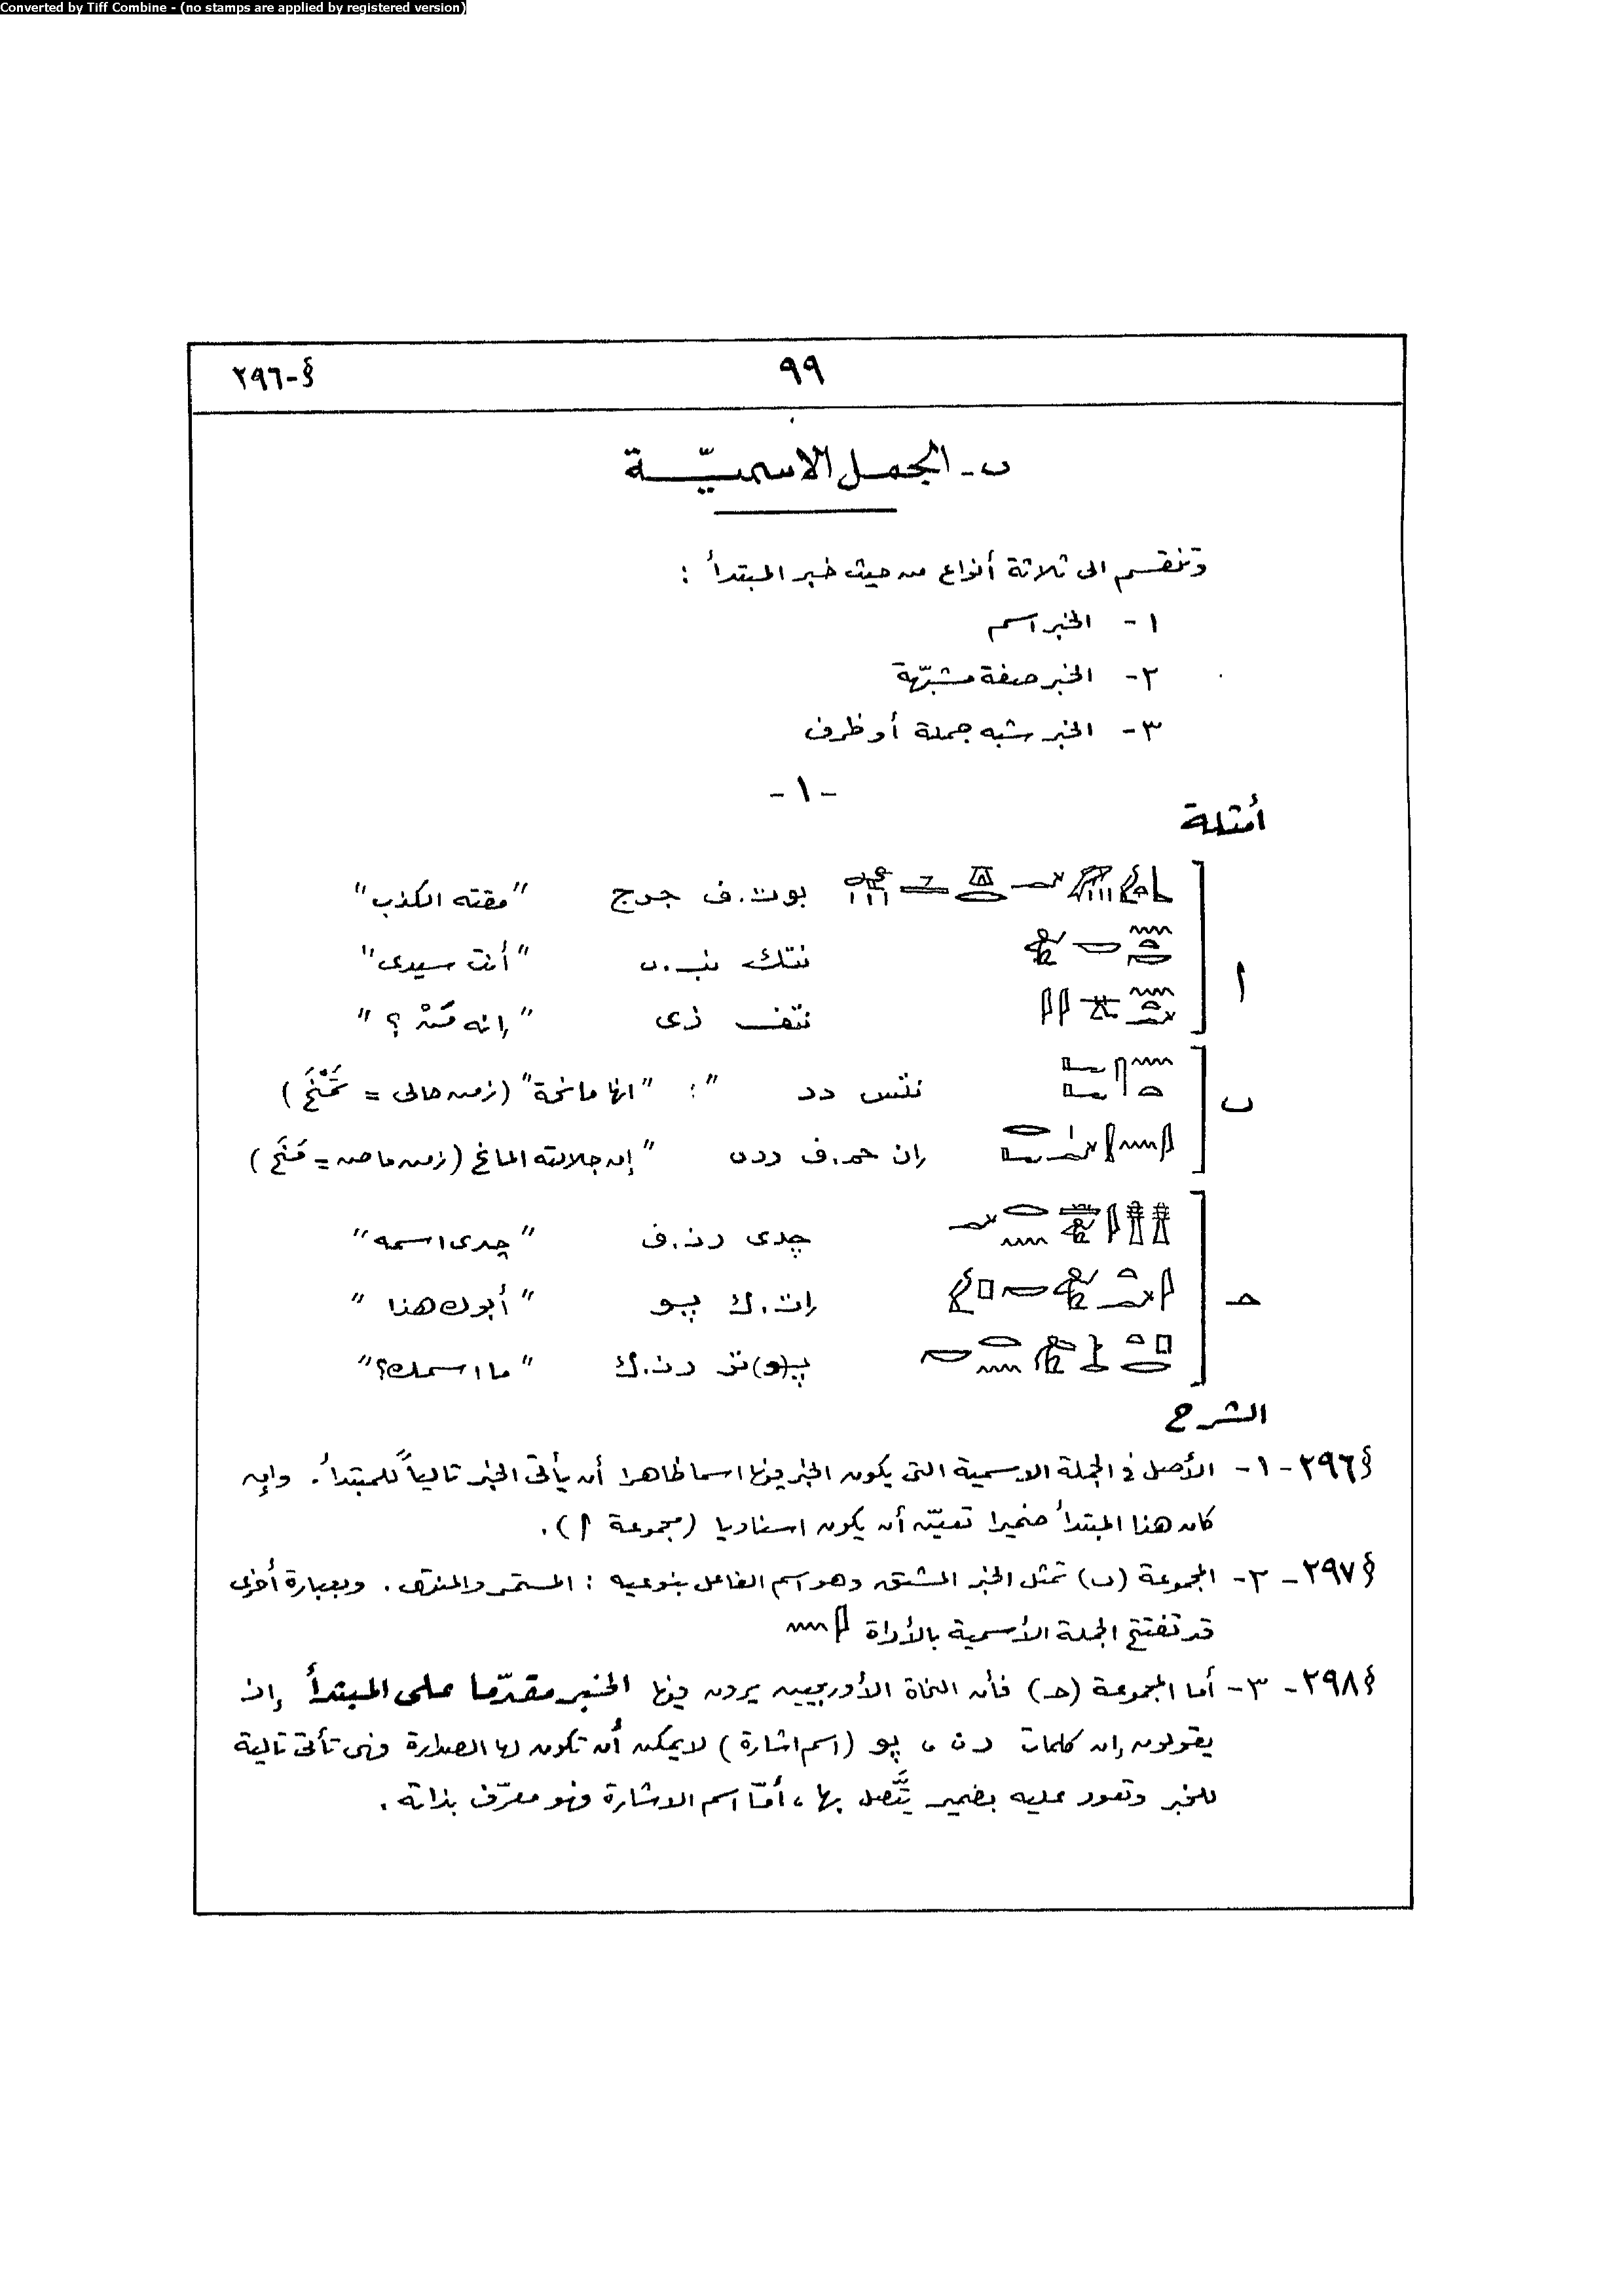 Converted by Tiff Combine - (no stamps are applied by registered version)
§-٢٩٦ ٩٩
ب - الجمل الاسميّة
وتنقسم الى ثلاثة أنواع من حيث خبر المبتدأ :
١ - الخبر اسم
٢ - الخبر صفة مشبّهة
٣ - الخبر شبه جملة أو ظرف
- ١ -
أمثلة
أ
بوت.ف جرج "مقته الكذب"
نتك نب.ى "أنت سيدى"
نتف زى "إنه مَنْ ؟"
ب
نتس دد ": "انها مانحة" (زمن حالى = تَمْنَح)
إن حم.ف ددن "إن جلالته المانح (زمن ماض = مَنَح)
حـ
چدى رن.ف "چدى اسمه"
إت.ك پو "أبوك هذا"
پ(و)تر رن.ك "ما اسمك؟"
الشرح
§٢٩٦ - ١ - الأصل فى الجملة الاسمية التى يكون الخبر فيها اسما ظاهرا أن يأتى الخبر تالياً للمبتدأ. وإن
كان هذا المبتدأ ضميرا تعيّن أن يكون اسناديا (مجموعة أ).
§٢٩٧ - ٢ - المجموعة (ب) تمثل الخبر المشتق وهو اسم الفاعل بنوعيه : المستمر والمنتهى. وبعبارة أخرى
قد تفتتح الجملة الأسمية بالأداة
§٢٩٨ - ٣ - أما المجموعة (حـ) فأن النحاة الأوربيين يرون فيها الخبر مقدّما على المبتدأ إذ
يقولون إن كلمات رن ، پو (اسم اشارة) لا يمكن أن تكون لها الصدارة فهى تأتى تالية
للخبر وتعود عليه بضمير يتَّصل بها ، أمّا اسم الاشارة فهو معرّف بذاته.